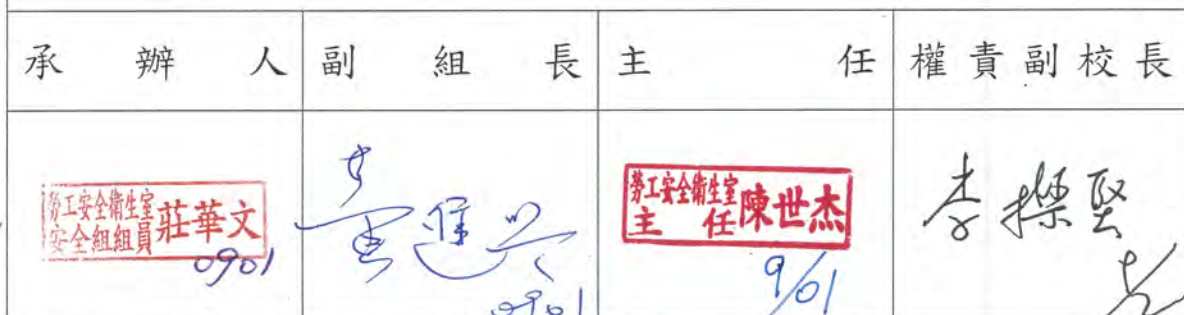 承辦人
副組長
主任
權責副校長
勞工安全衛生室
安全組組員
莊華文
0901
0901
勞工安全衛生室
主任
陳世杰
9/01